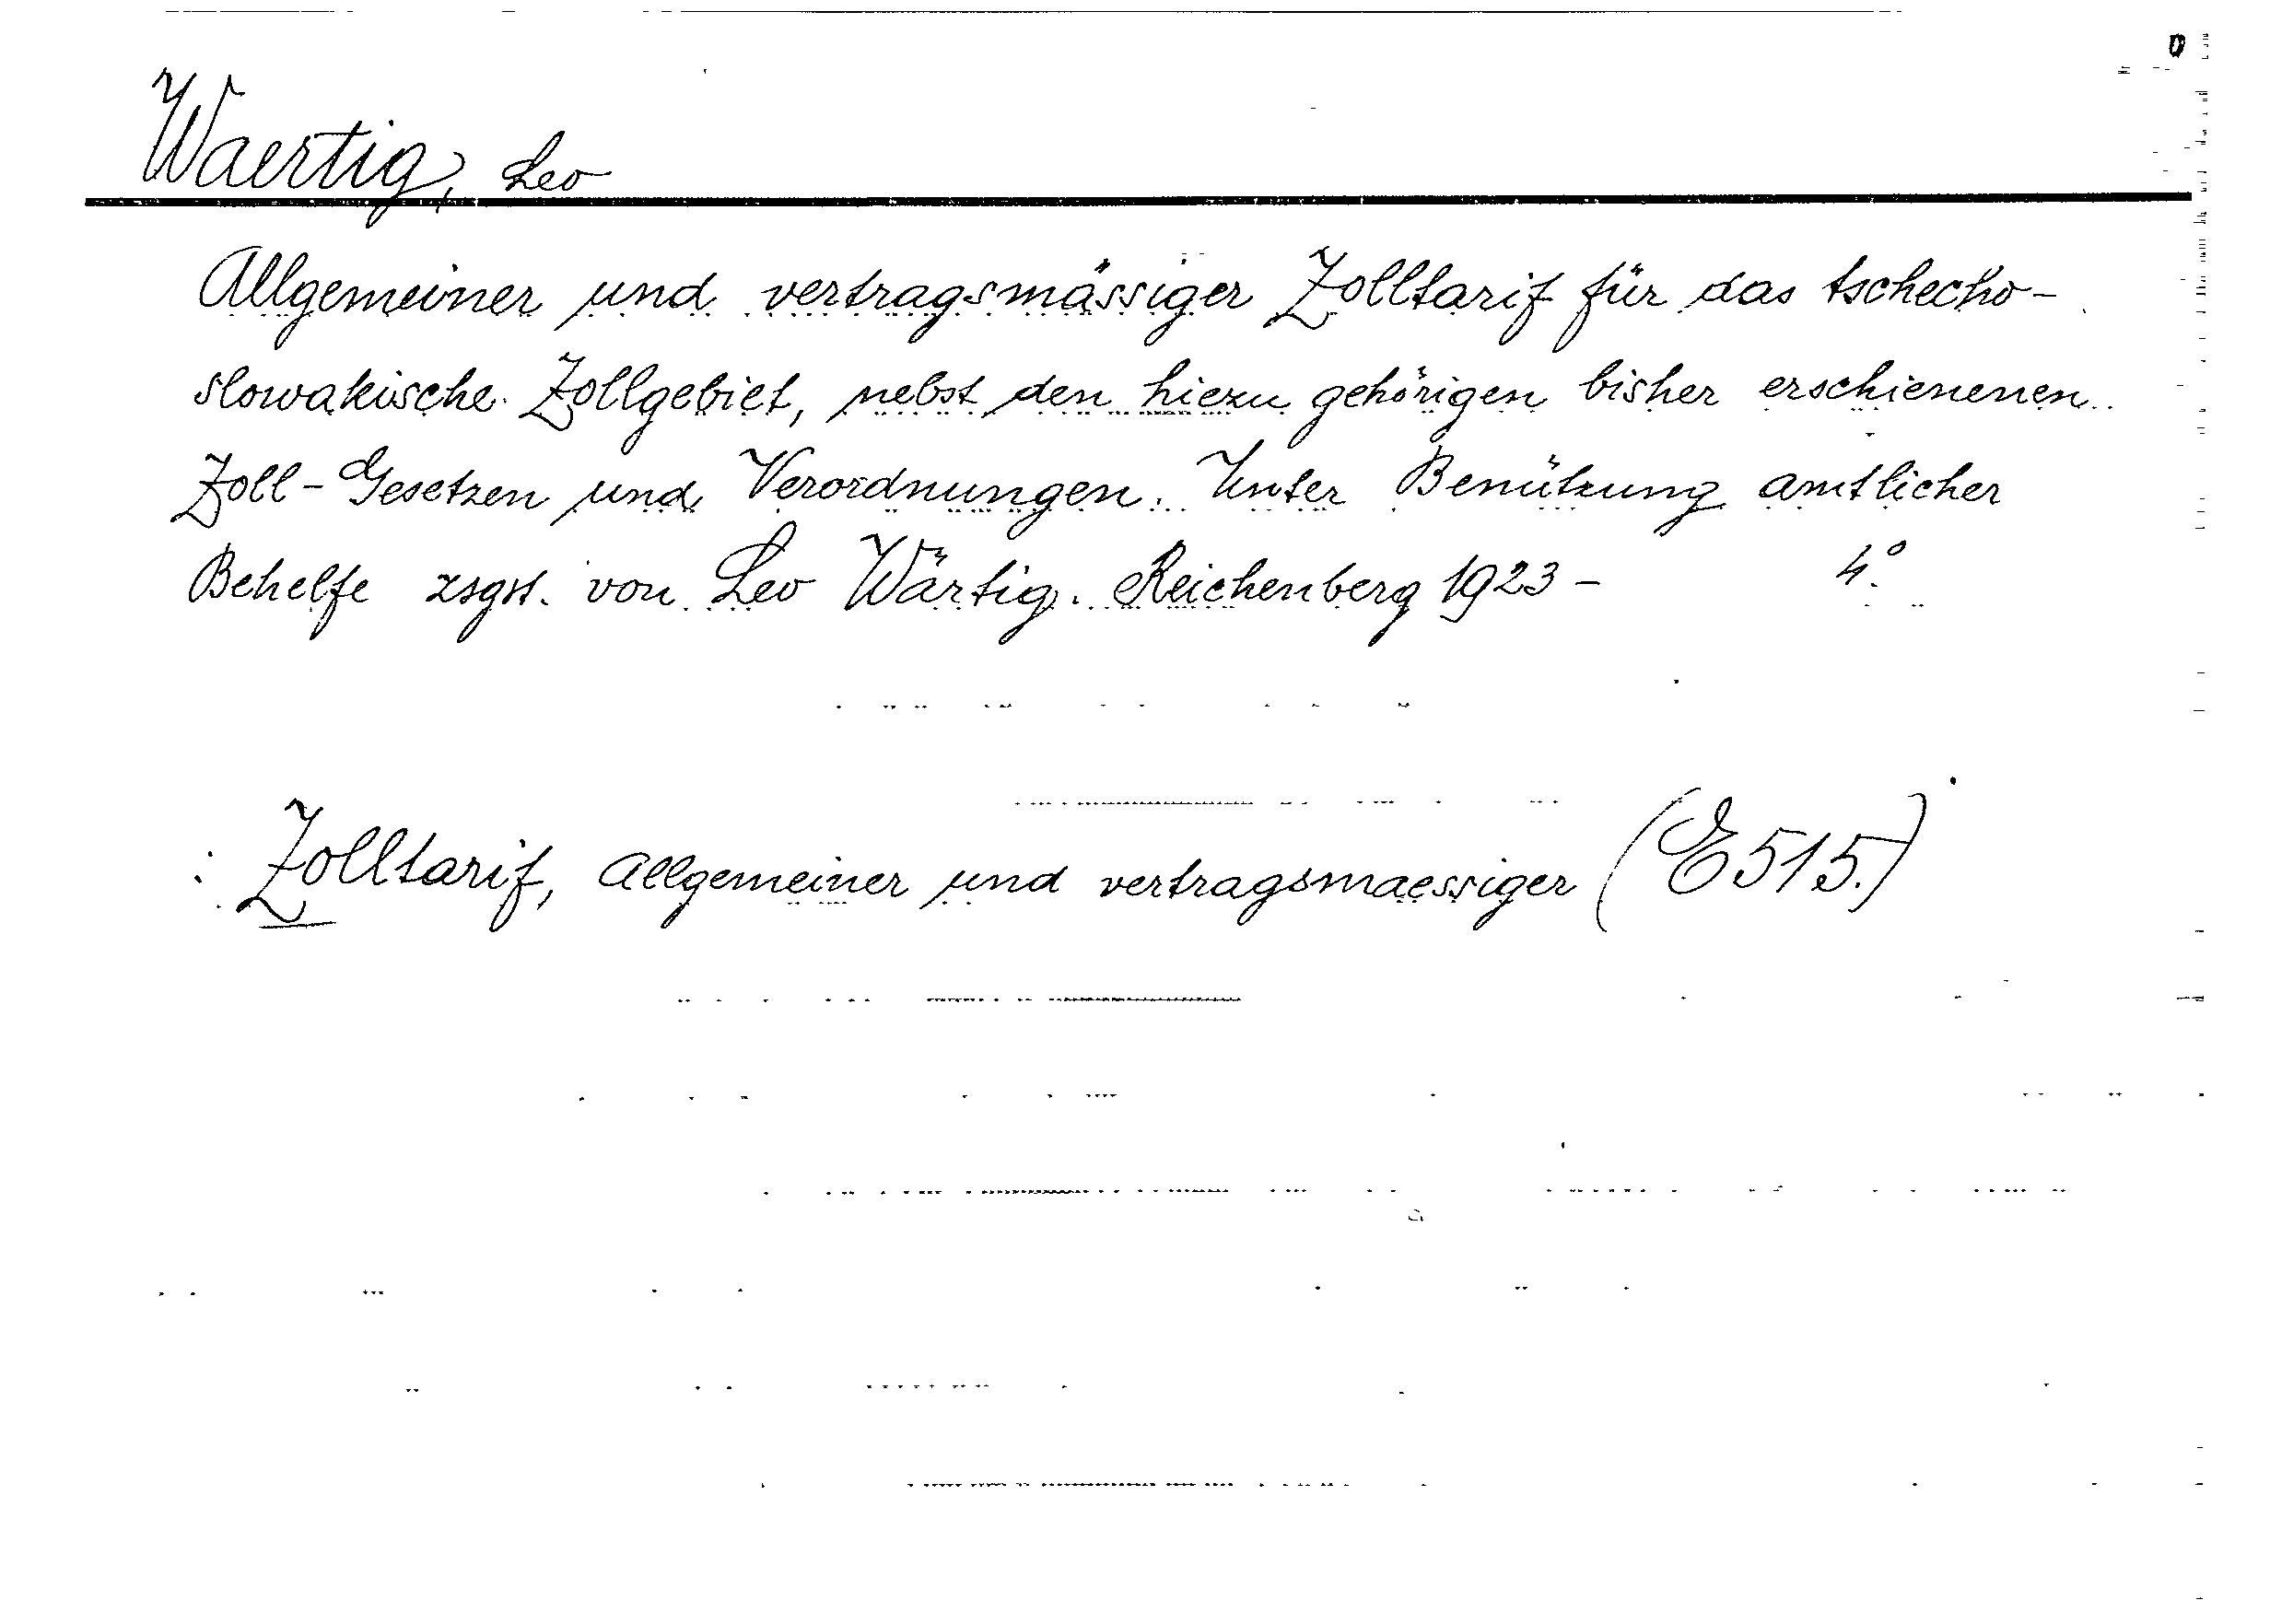 Waertig, Leo
Allgemeiner und vertragsmässiger Zolltarif für das tschecho-
slowakische Zollgebiet, nebst den hiezu gehörigen bisher erschienenen
Zoll-Gesetzen und Verordnungen. Unter Benützung amtlicher
Behelfe zsgst. von Leo Wärtig. Reichenberg 1923 - 4°.
: Zolltarif, Allgemeiner und vertragsmaessiger (E515.)